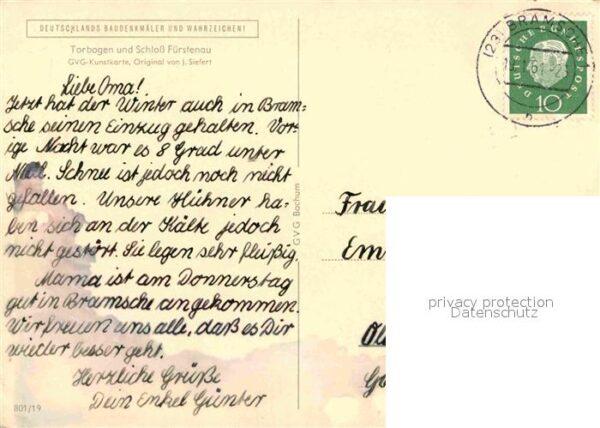 DEUTSCHLANDS BAUDENKMÄLER UND WAHRZEICHEN!
Torbogen und Schloß Fürstenau
GVG-Kunstkarte, Original von J. Siefert
Liebe Oma!
Jetzt hat der Winter auch in Bram-
sche seinen Einzug gehalten. Vor-
ige Nacht war es 8 Grad unter
Null. Schnee ist jedoch noch nicht
gefallen. Unsere Hühner ha-
ben sich an der Kälte jedoch
nicht gestört. Sie legen sehr fleißig.
Mama ist am Donnerstag
gut in Bramsche angekommen.
Wir freuen uns alle, daß es Dir
wieder besser geht.
Herzliche Grüße
Dein Enkel Günter
801/19
GVG Bochum
(23) BRAMSCHE
DEUTSCHE BUNDESPOST
10
Frau
Em
privacy protection
Datenschutz